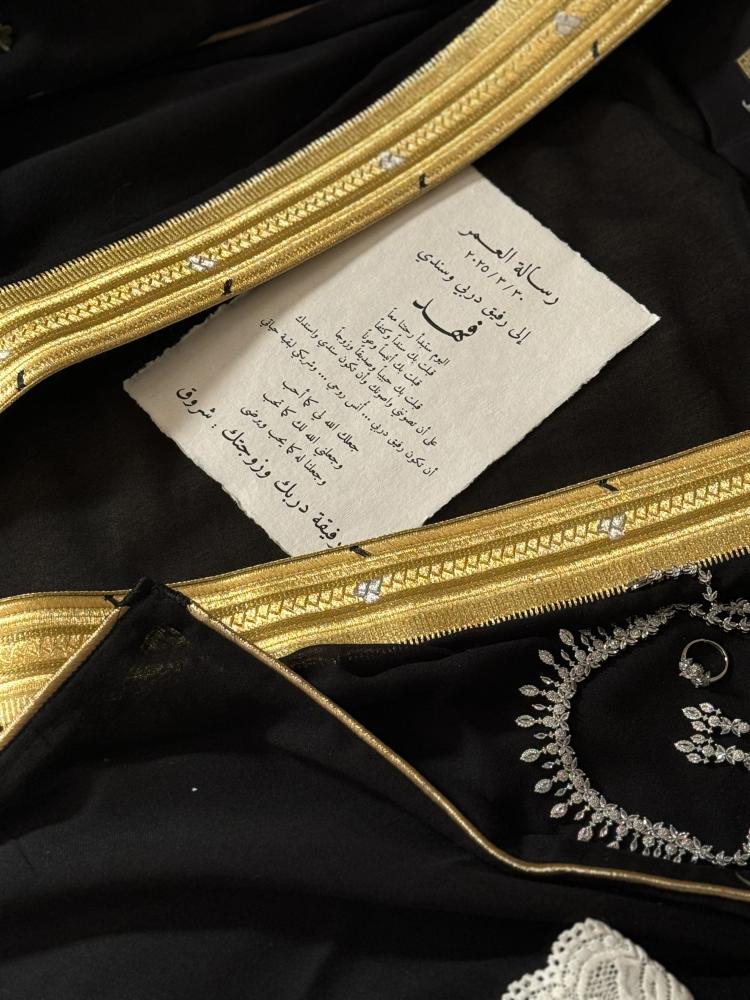 رسالة العمر
٢٠٢٥/٣/٢٠
إلى رفيق دربي وسندي
فهد
اليوم سنبدأ رحلتنا معاً
قبلت بك سنداً وكتفاً
قبلت بك أنيساً وعوناً
قبلت بك حبيباً وصديقاً وزوجاً
على أن تصونني وأصونك وأن تكون سندي وأسندك
أن تكون رفيق دربي ... أنس روحي ... وشريكي لبقية حياتي
جعلك الله لي كما أحب
وجعلني الله لك كما تحب
وجعلنا له كما يحب ويرضى
رفيقة دربك وزوجتك : شروق